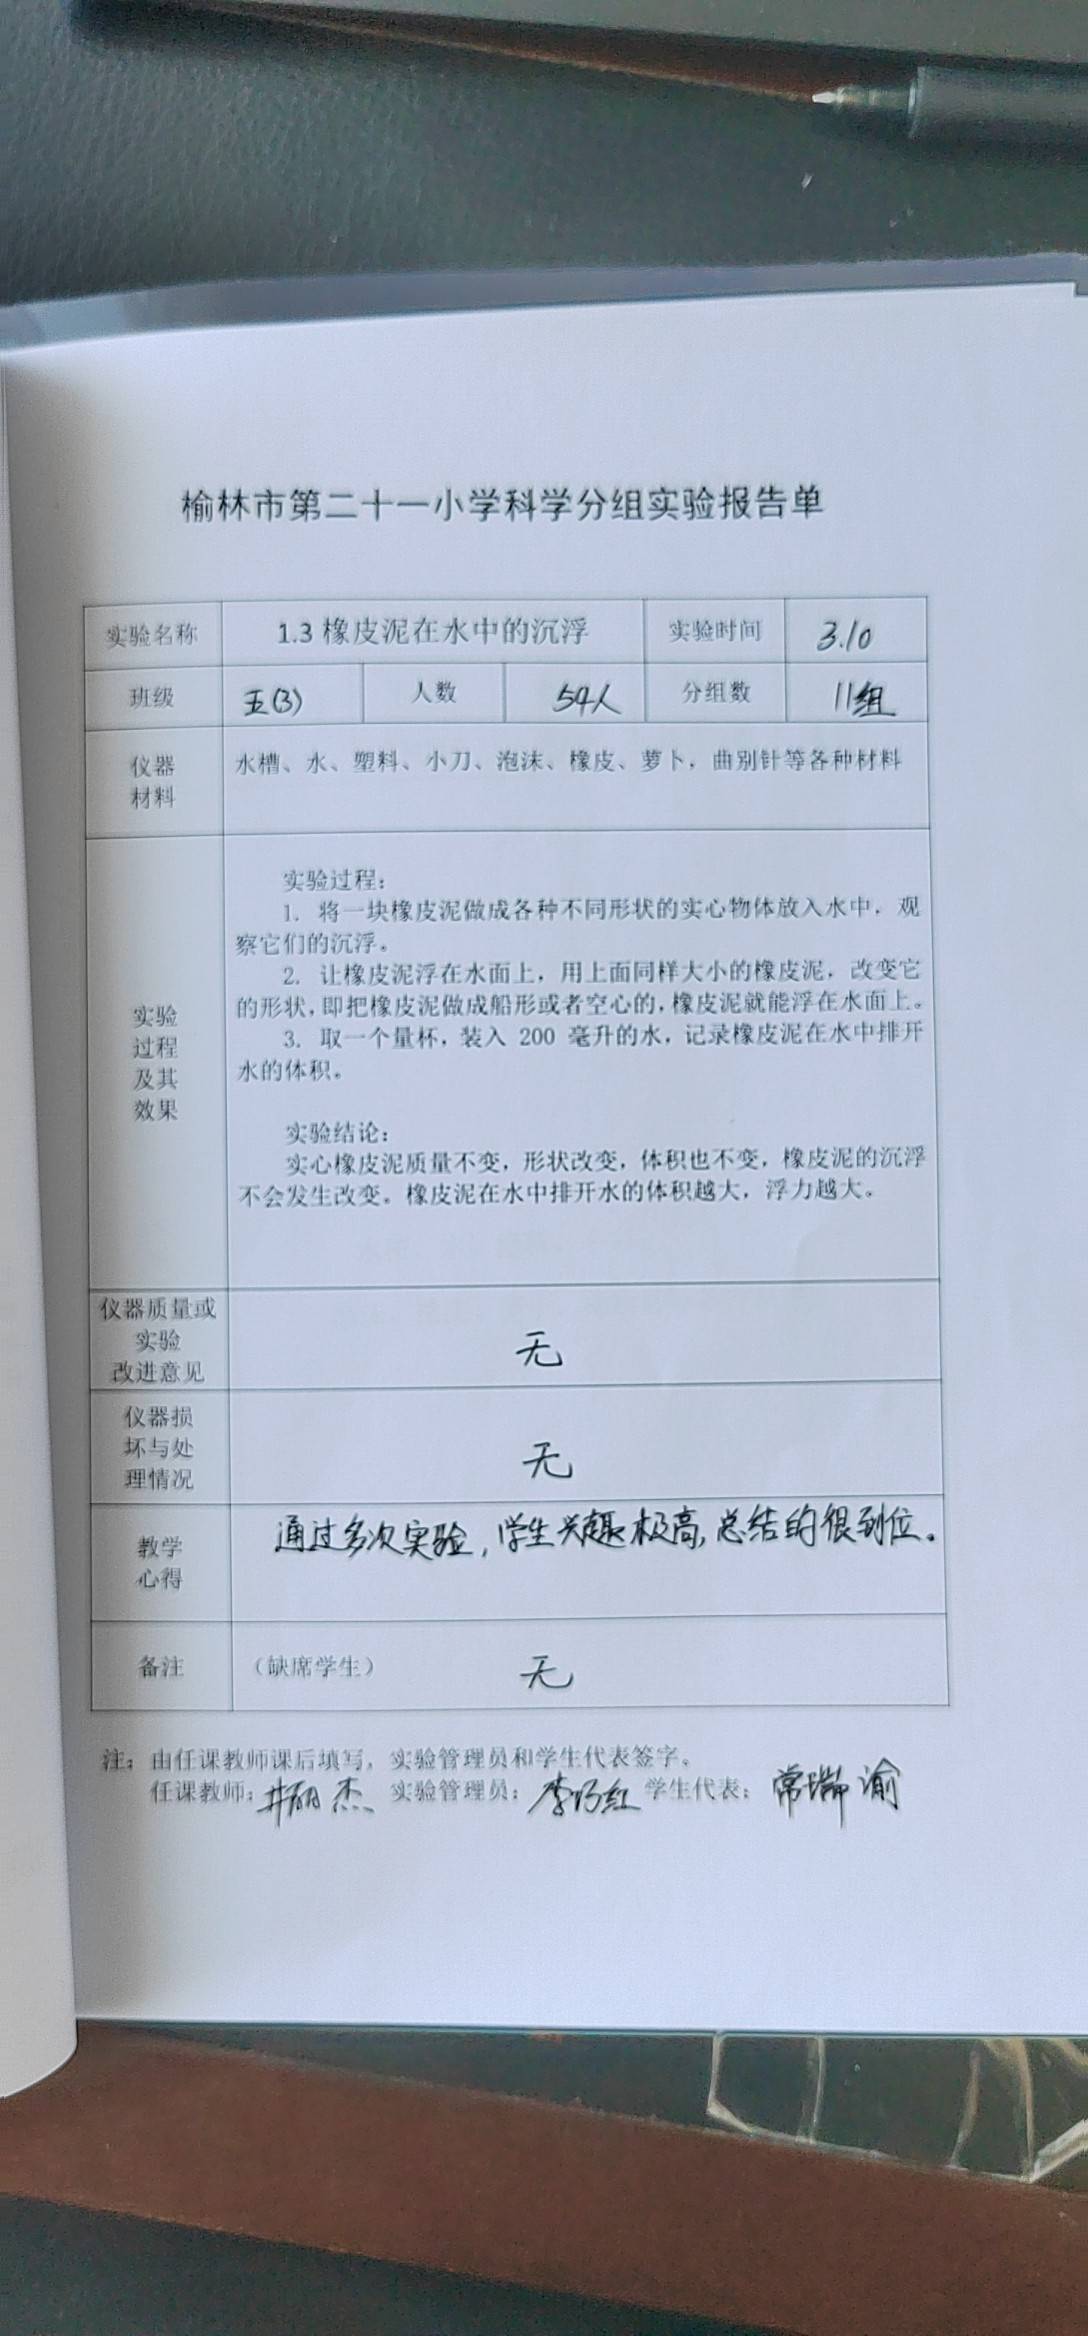 榆林市第二十一小学科学分组实验报告单
实验名称 1.3 橡皮泥在水中的沉浮 实验时间 3.10
班级 五(3) 人数 54人 分组数 11组
仪器
材料
水槽、水、塑料、小刀、泡沫、橡皮、萝卜，曲别针等各种材料
实验
过程
及其
效果
实验过程：
1. 将一块橡皮泥做成各种不同形状的实心物体放入水中，观
察它们的沉浮。
2. 让橡皮泥浮在水面上，用上面同样大小的橡皮泥，改变它
的形状，即把橡皮泥做成船形或者空心的，橡皮泥就能浮在水面上。
3. 取一个量杯，装入 200 毫升的水，记录橡皮泥在水中排开
水的体积。
实验结论：
实心橡皮泥质量不变，形状改变，体积也不变，橡皮泥的沉浮
不会发生改变。橡皮泥在水中排开水的体积越大，浮力越大。
仪器质量或
实验
改进意见
无
仪器损
坏与处
理情况
无
教学
心得
通过多次实验，学生兴趣极高，总结的很到位。
备注 （缺席学生） 无
注：由任课教师课后填写，实验管理员和学生代表签字。
任课教师： 杰 实验管理员：李巧红 学生代表：常瑞渝